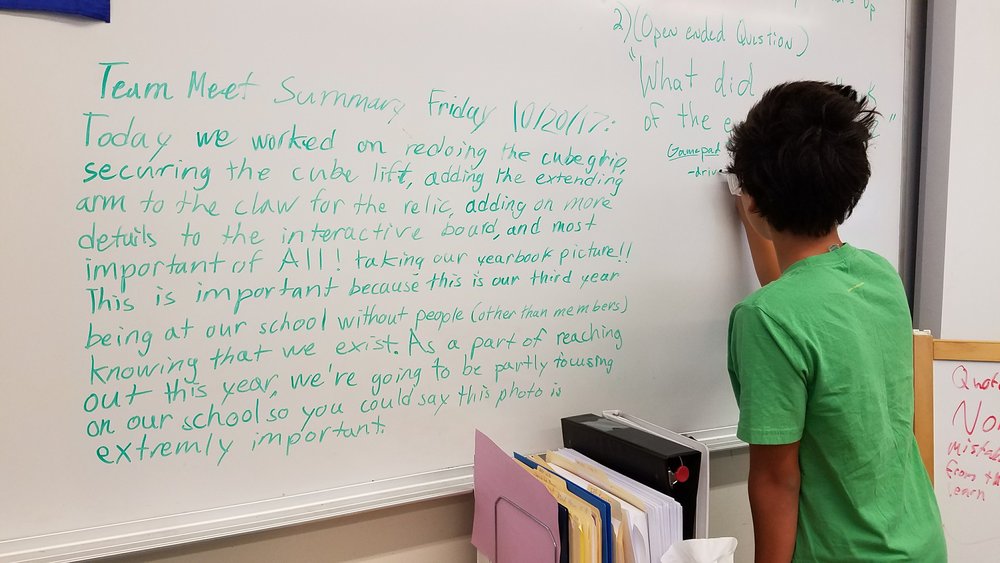 Team Meet Summary Friday 10/20/17:
Today we worked on redoing the cube grip,
securing the cube lift, adding the extending
arm to the claw for the relic, adding on more
details to the interactive board, and most
important of All! taking our yearbook picture!!
This is important because this is our third year
being at our school without people (other than members)
knowing that we exist. As a part of reaching
out this year, we're going to be partly focusing
on our school so you could say this photo is
extremly important.
2) (Open ended Question)
"What did
of the
Gamepad
-driv
No
mistak
from th
learn